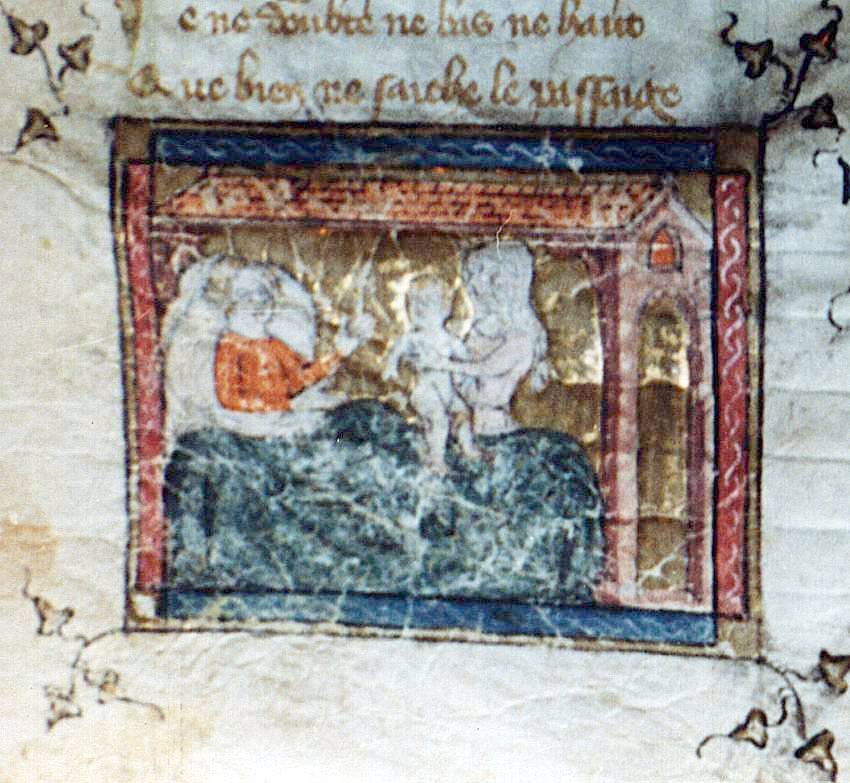 e ne doubte ne bas ne haut
Que bien ne saiche le passaige